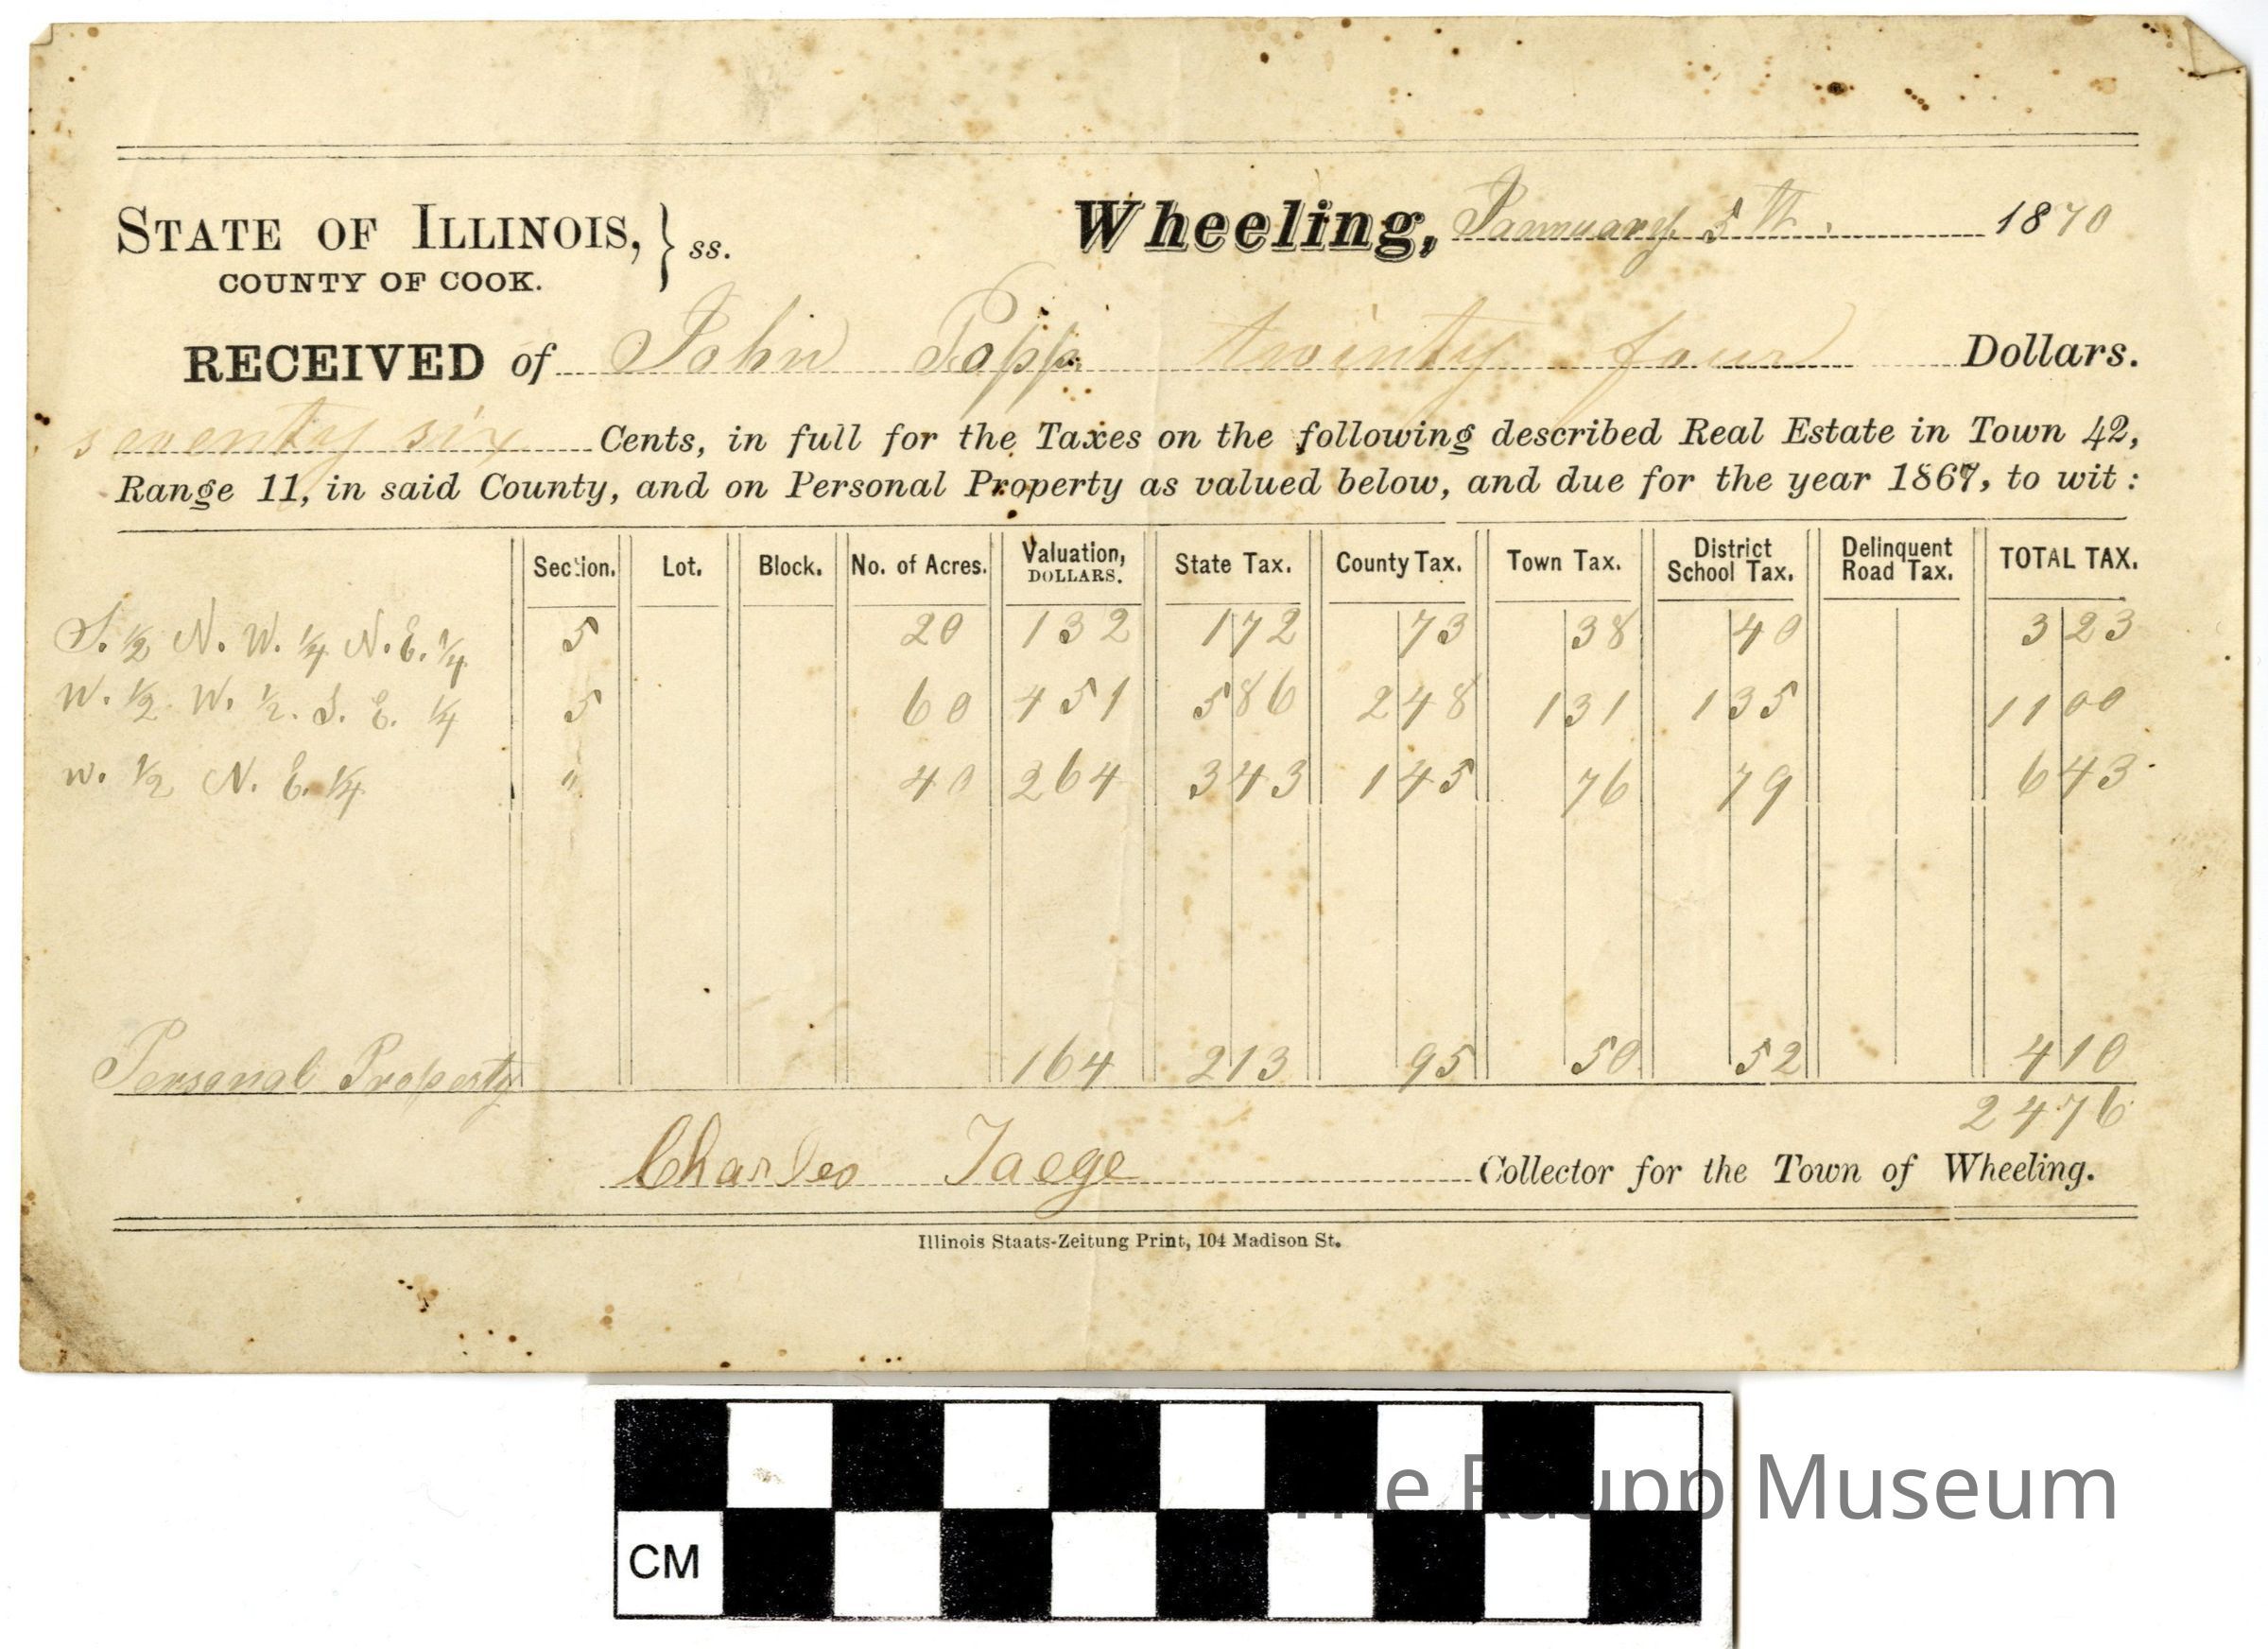 STATE OF ILLINOIS, } ss.
COUNTY OF COOK.
Wheeling, Jannuary 5th. 1870
RECEIVED of John Popp twinty four Dollars.
seventy six Cents, in full for the Taxes on the following described Real Estate in Town 42,
Range 11, in said County, and on Personal Property as valued below, and due for the year 1867, to wit:
Section. Lot. Block. No. of Acres. Valuation, DOLLARS. State Tax. County Tax. Town Tax. District School Tax. Delinquent Road Tax. TOTAL TAX.
S. ½ N. W. ¼ N. E. ¼ 5 20 132 1 72 73 38 40 3 23
W. ½ W. ½. S. E. ¼ 5 60 451 5 86 2 48 1 31 1 35 11 00
W. ½ N. E. ¼ " 40 264 3 43 1 45 76 79 6 43
Personal Property 164 2 13 95 50 52 4 10
24 76
Charles Taege Collector for the Town of Wheeling.
Illinois Staats-Zeitung Print, 104 Madison St.
The Raupp Museum
CM